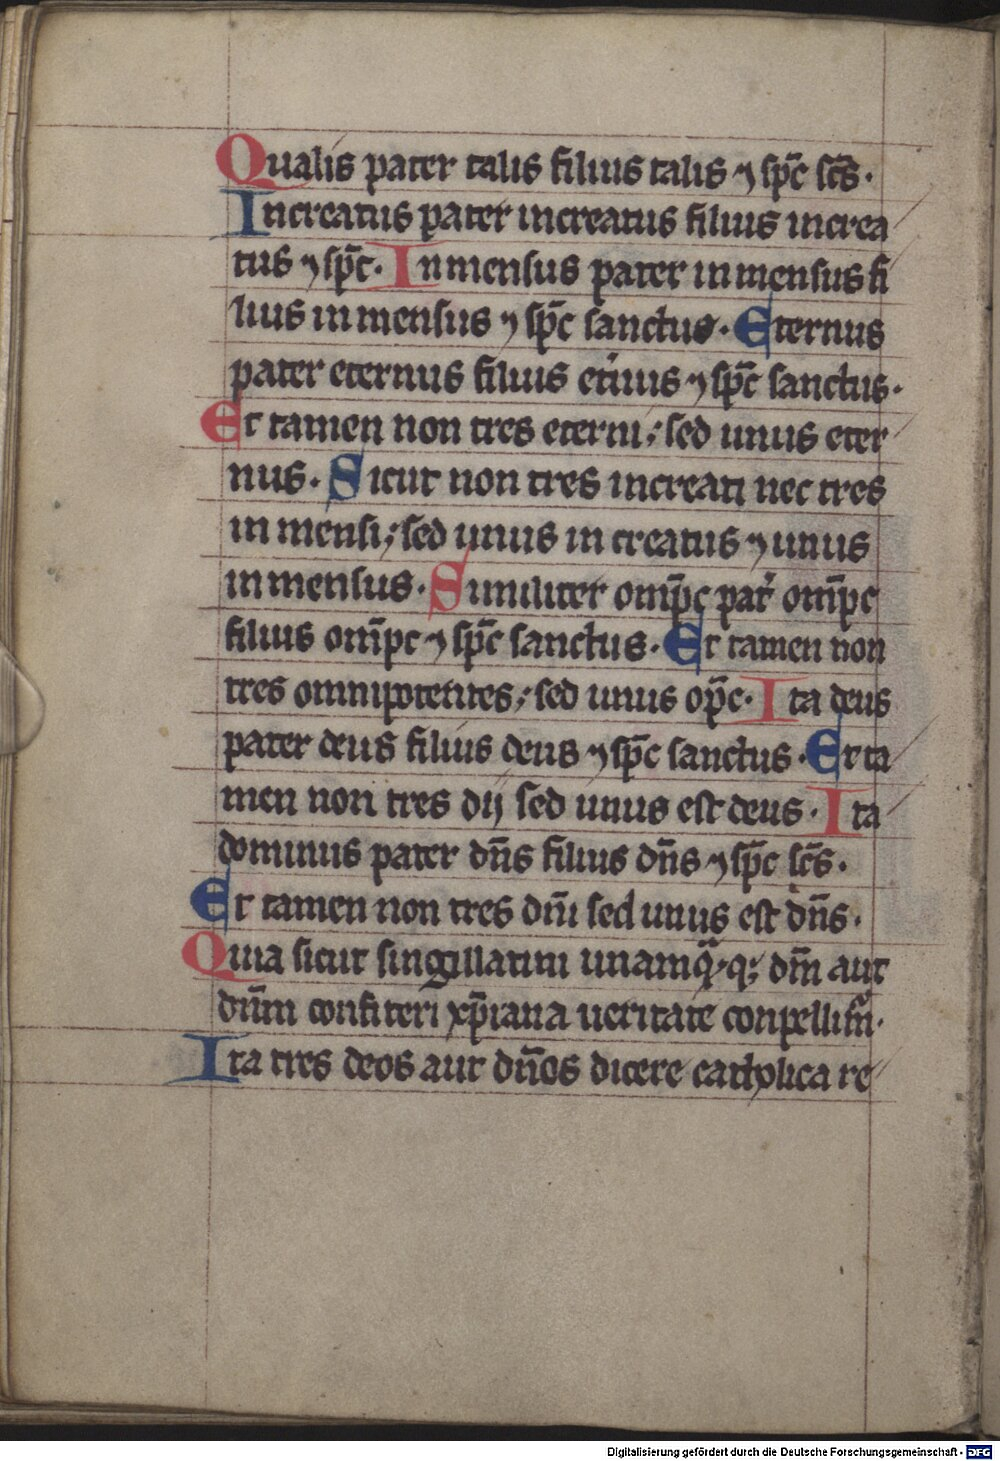 Qualis pater talis filius talis ⁊ sp̄c sc̄s.
Increatus pater increatus filius increa
tus ⁊ sp̄c. Inmensus pater inmensus fi
lius inmensus ⁊ sp̄c sanctus. Eternus
pater eternus filius et̾nus ⁊ sp̄c sanctus.
Et tamen non tres eterni; sed unus eter
nus. Sicut non tres increati nec tres
inmensi; sed unus in creatus ⁊ unus
inmensus. Similiter om̄pc pat̾ om̄pc
filius om̄pc ⁊ sp̄c sanctus. Et tamen non
tres omnipotentes; sed unus op̄c. Ita deus
pater deus filius deus ⁊ sp̄c sanctus. Et ta
men non tres dij sed unus est deus. Ita
dominus pater dn̄s filius dn̄s ⁊ sp̄c sc̄s.
Et tamen non tres dn̄i sed unus est dn̄s.
Quia sicut singillatim unamq̄q; dm̄ aut
dn̄m confiteri xp̄iana ueritate conpellim̄.
Ita tres deos aut dn̄os dicere catholica re
Digitalisierung gefördert durch die Deutsche Forschungsgemeinschaft - DFG